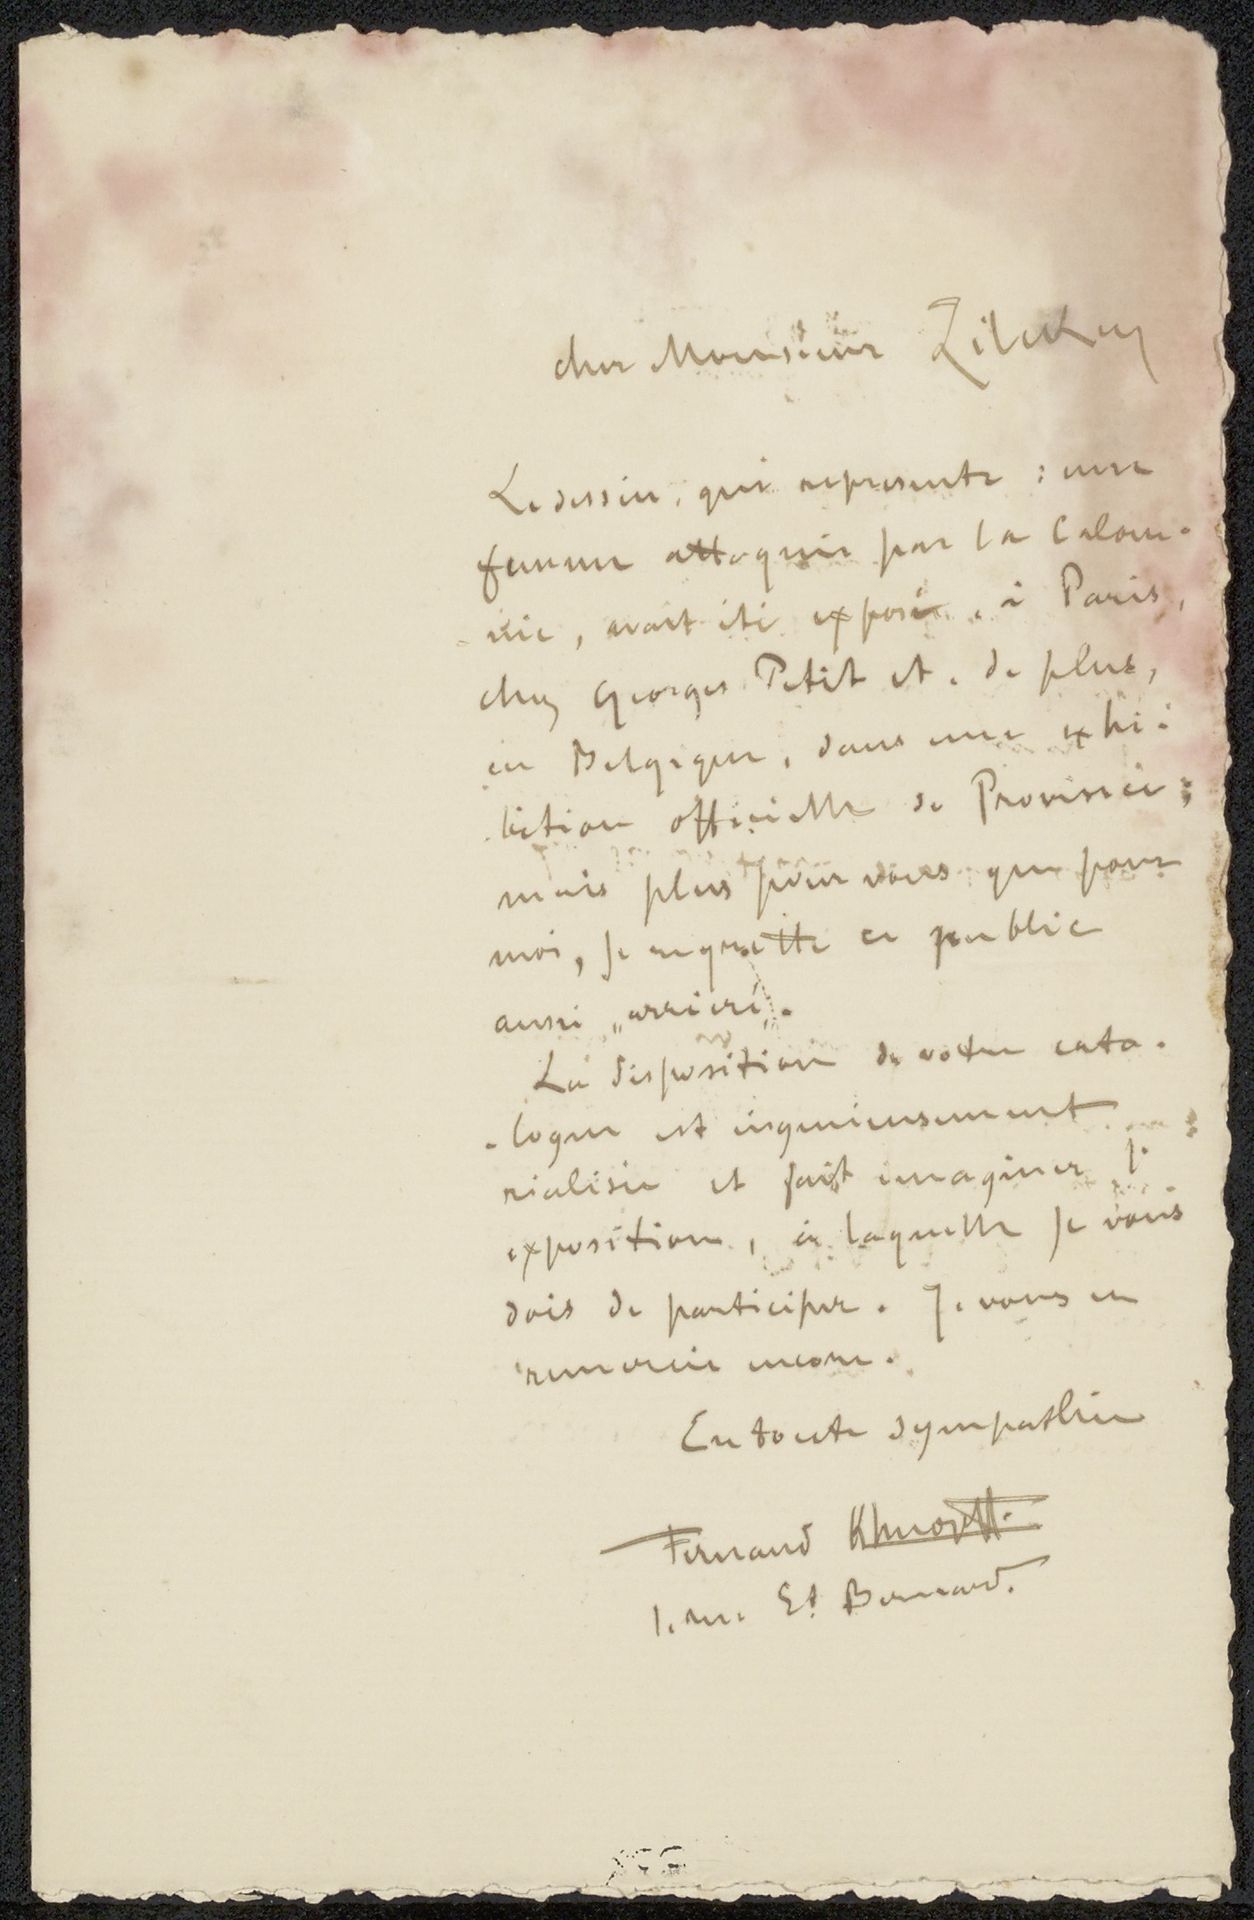 cher Monsieur Zilcken
Le dessin, qui represente : une
femme attaquée par la Calom-
nie, avait été exposé, à Paris,
chez Georges Petit et, de plus,
en Belgique, dans une exhi-
bition officielle de Province ;
mais plus pour vous que pour
moi, je regrette ce public
aussi „arriéré".
La disposition de votre cata-
-logue est ingénieusement
réalisée et fait imaginer l'
exposition, à laquelle je vous
dois de participer. Je vous en
remercie encore.
En toute sympathie
Fernand Khnopff.
1. rue St Bernard.